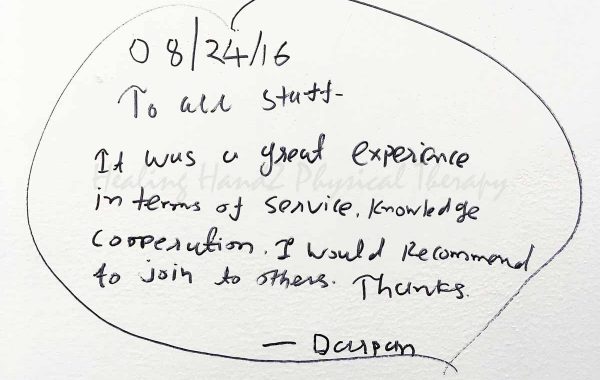 08/24/16
To all staff-
It was a great experience
Healing Hand2 Physical Therapy
in terms of service, knowledge
cooperation. I would Recommend
to join to others. Thanks.
— Darpan